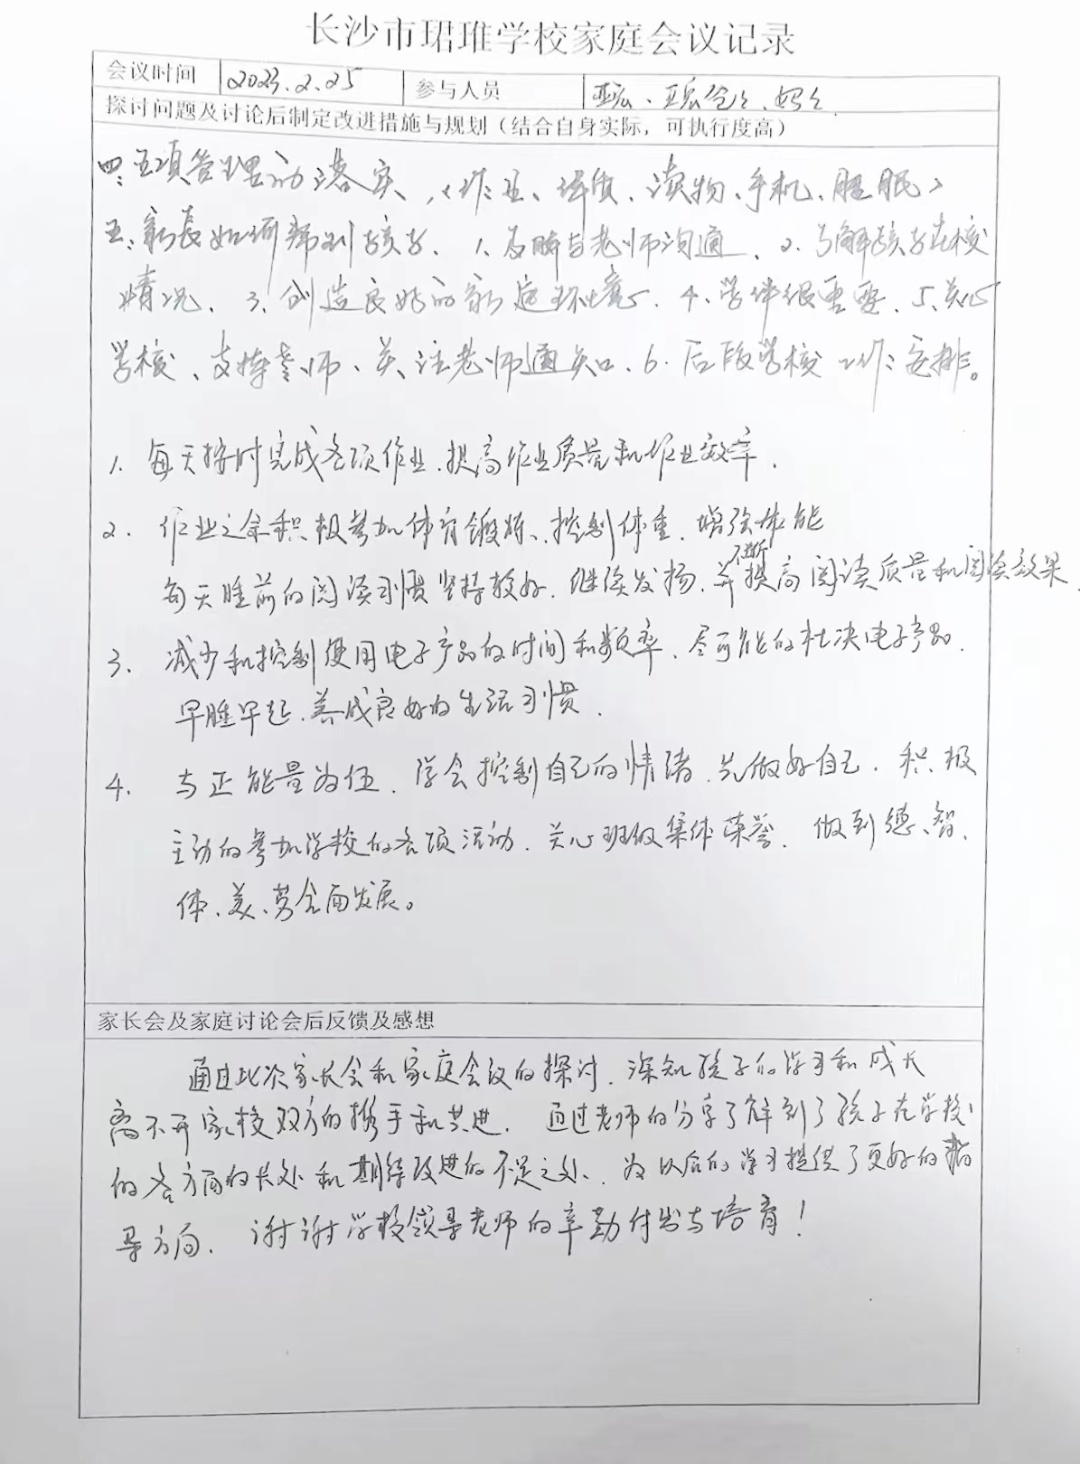 长沙市珺琟学校家庭会议记录
会议时间 2023.2.25 参与人员 妈妈
探讨问题及讨论后制定改进措施与规划（结合自身实际，可执行度高）
四、五项管理的落实、（作业、体质、读物、手机、睡眠）
五、家长如何帮到孩子、1、及时与老师沟通、2、了解孩子在校
情况、3、创造良好的家庭环境、4、学伴很重要、5、关心
学校、支持老师、关注老师通知、6、后段学校工作安排。
1、每天按时完成各项作业、提高作业质量和作业效率、
2、作业之余积极参加体育锻炼、控制体重、增强体能
每天睡前的阅读习惯坚持较好、继续发扬、并不断提高阅读质量和阅读效果、
3、减少和控制使用电子产品的时间和频率、尽可能的杜决电子产品、
早睡早起、养成良好的生活习惯、
4、与正能量为伍、学会控制自己的情绪、先做好自己、积极
主动的参加学校的各项活动、关心班级集体荣誉、做到德、智、
体、美、劳全面发展。
家长会及家庭讨论会后反馈及感想
通过此次家长会和家庭会议的探讨、深知孩子的学习和成长
离不开家校双方的携手和共进、通过老师的分享了解到了孩子在学校
的各方面的长处和期待改进的不足之处、为以后的学习提供了更好的指
导方向、谢谢学校领导老师的辛勤付出与培育！